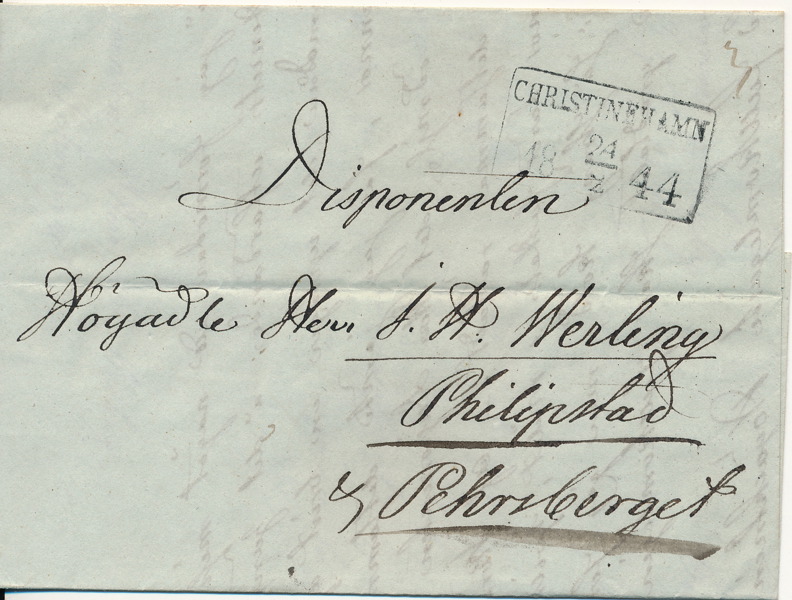 CHRISTINEHAMN
18 24/2 44
Disponenten
Högädle Herr J. H. Werling
Philipstad
& Pehrsberget